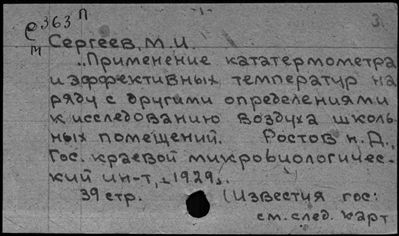 -1-
3.
С363 П
М
Сергеев, М.И.
„Применение кататермометра
и эффективных температур на
ряду с другими определениями
к исследованию воздуха школь-
ных помещений. Ростов н.Д.,
Гос. краевой микробиологичес-
кий ин-т, 1929.
39 стр. (Известия гос:
см. след. карт